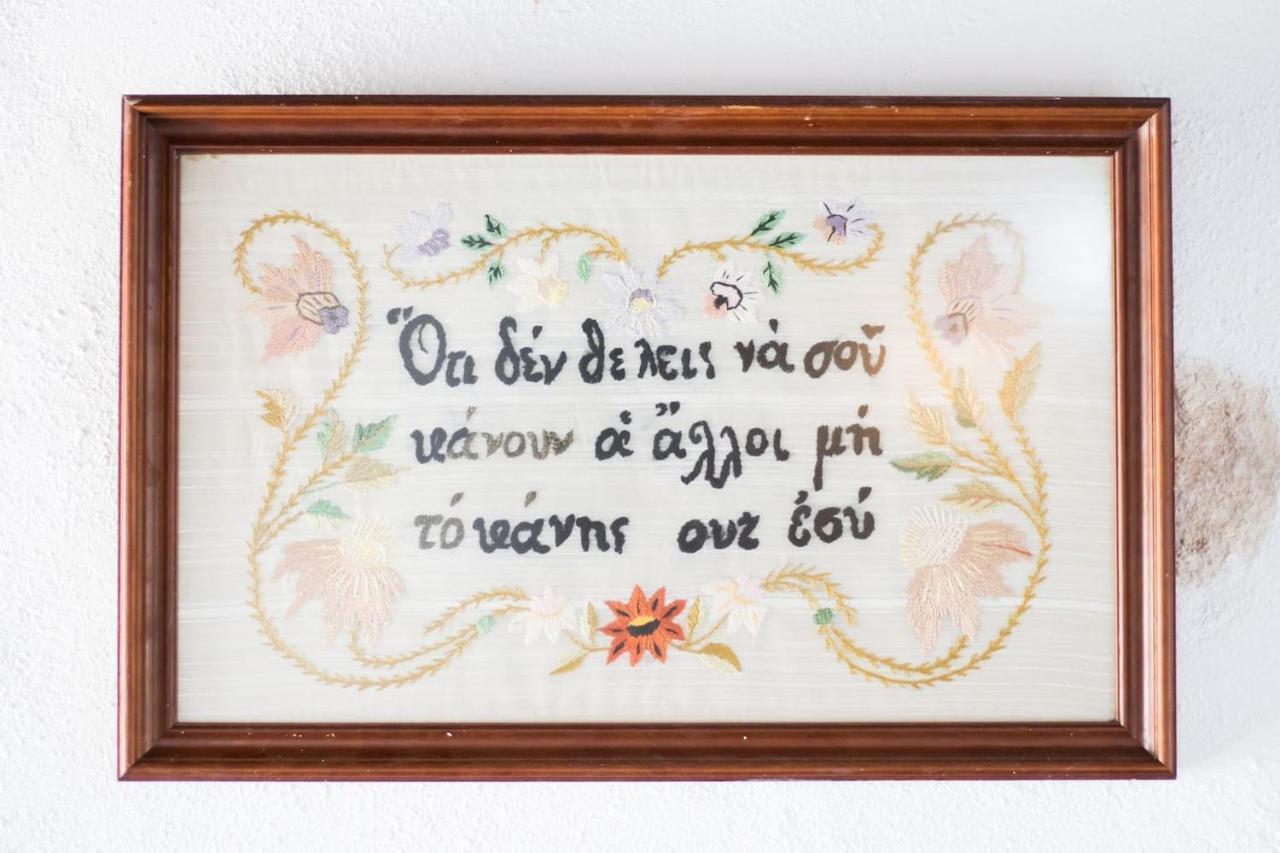 Ὅτι δέν θελεις νὰ σοῦ
κάνουν οἱ ἄλλοι μή
τό κάνης ουτ ἐσύ